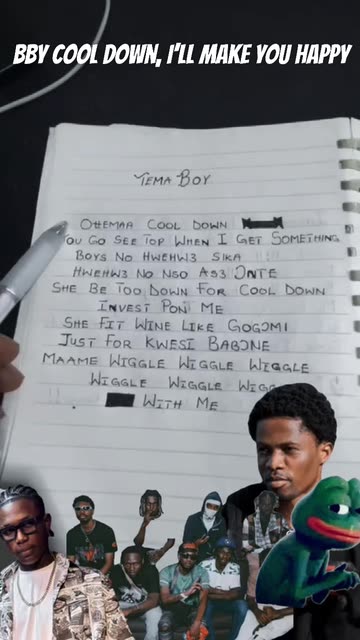 BBY COOL DOWN, I'LL MAKE YOU HAPPY
TEMA BOY
OHEMAA COOL DOWN
YOU GO SEE TOP WHEN I GET SOMETHING
BOYS NO HWEHW3 SIKA
HWEHW3 NO NSO AS3 ƆNTE
SHE BE TOO DOWN FOR COOL DOWN
INVEST PON ME
SHE FIT WINE LIKE GOGOMI
JUST FOR KWESI BABONE
MAAME WIGGLE WIGGLE WIGGLE
WIGGLE WIGGLE
WITH ME